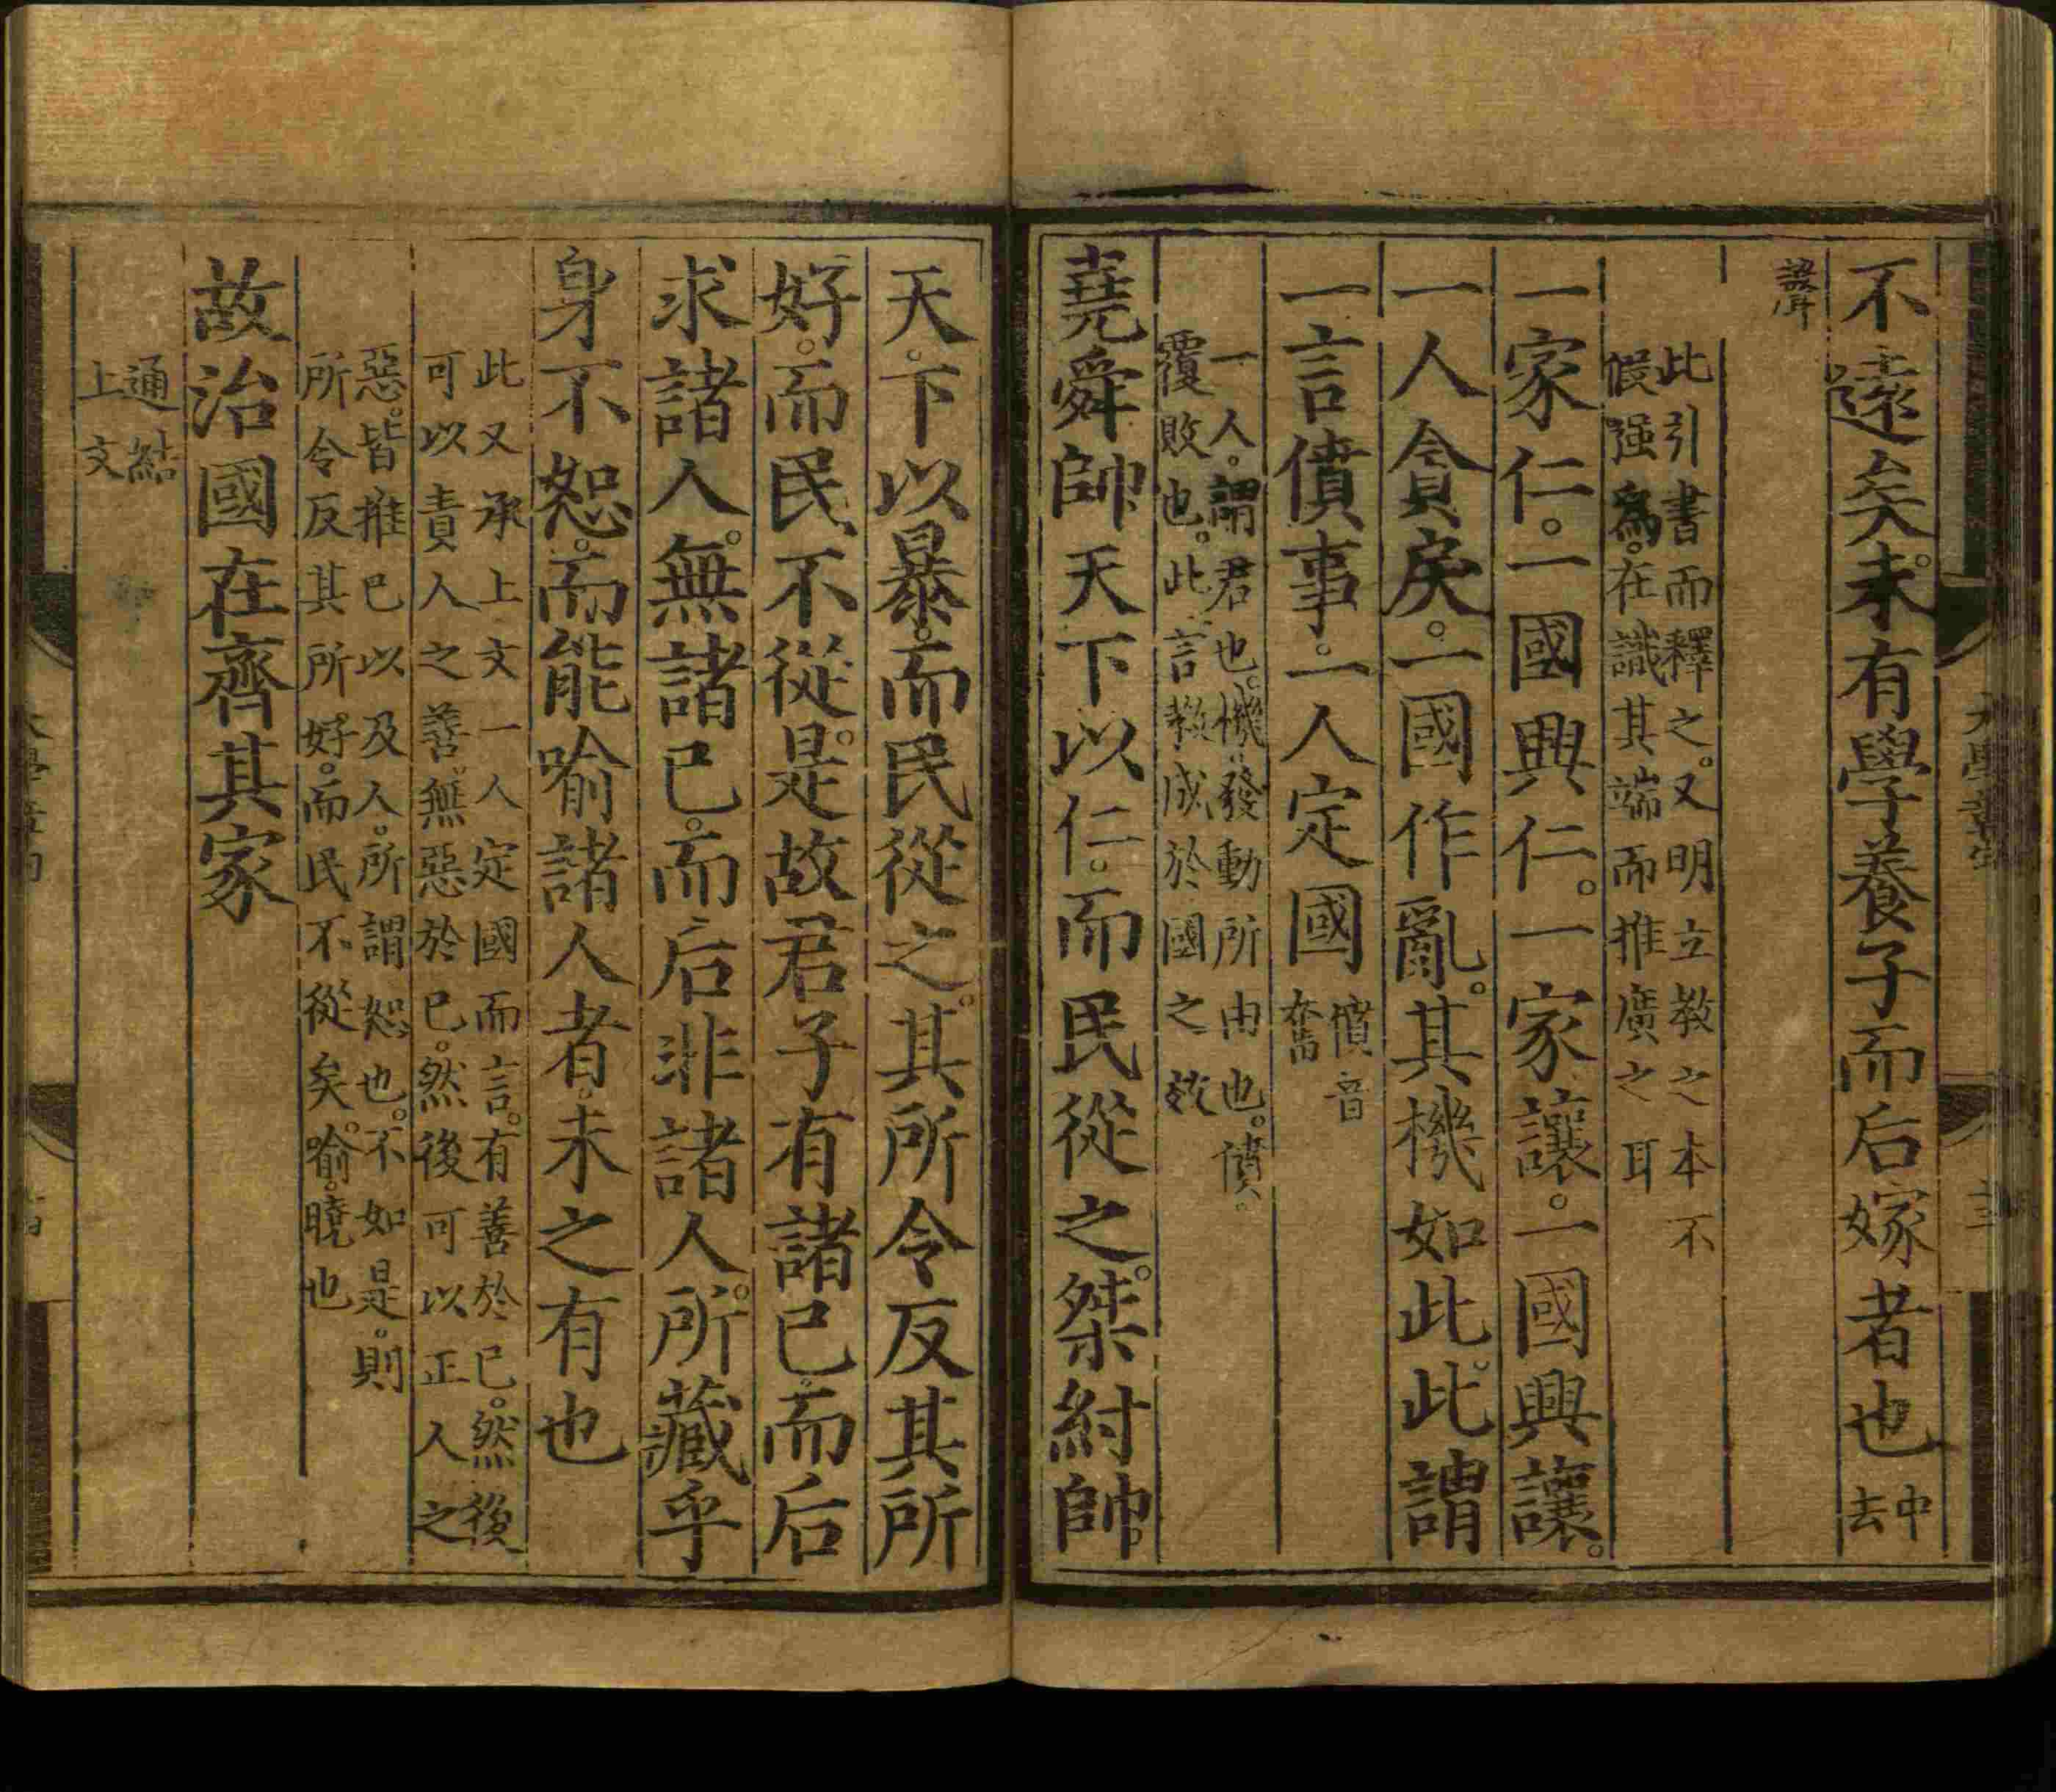 不遠矣。未有學養子而后嫁者也中
去
聲
此引書而釋之。又明立教之本不
假强爲。在識其端而推廣之耳
一家仁。一國興仁。一家讓。一國興讓。
一人貪戾。一國作亂。其機如此。此謂
一言僨事。一人定國僨音
奮
一人。謂君也。機。發動所由也。僨。
覆敗也。此言教成於國之效
堯舜帥天下以仁。而民從之。桀紂帥。
天。下以暴。而民從之。其所令反其所
好。而民不從。是故君子有諸己。而后
求諸人。無諸己。而后非諸人。所藏乎
身不恕。而能喻諸人者。未之有也
此又承上文一人定國而言。有善於己。然後
可以責人之善。無惡於己。然後可以正人之
惡。皆推己以及人。所謂恕也。不如是。則
所令反其所好。而民不從矣。喻。曉也
故治國在齊其家
通結
上文